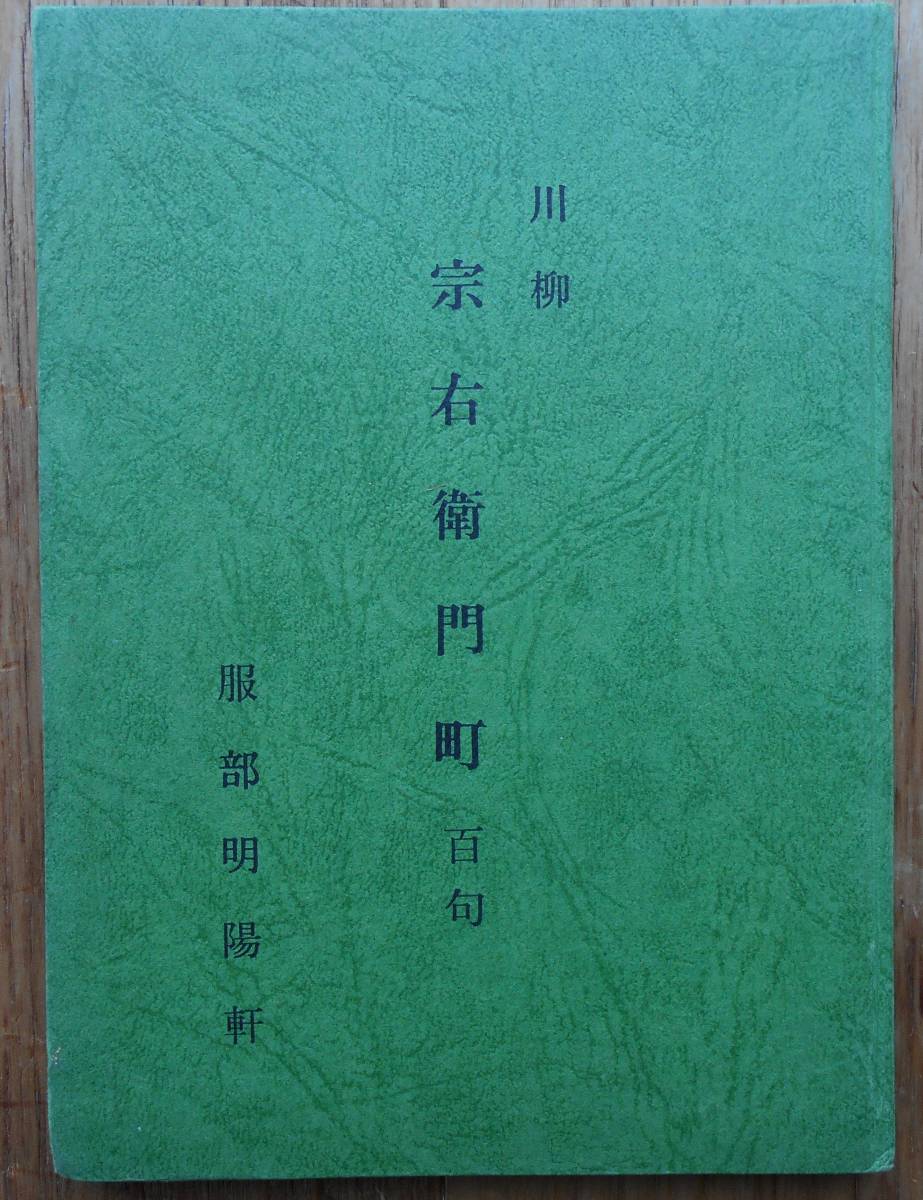 川柳
宗右衛門町百句
服部明陽軒